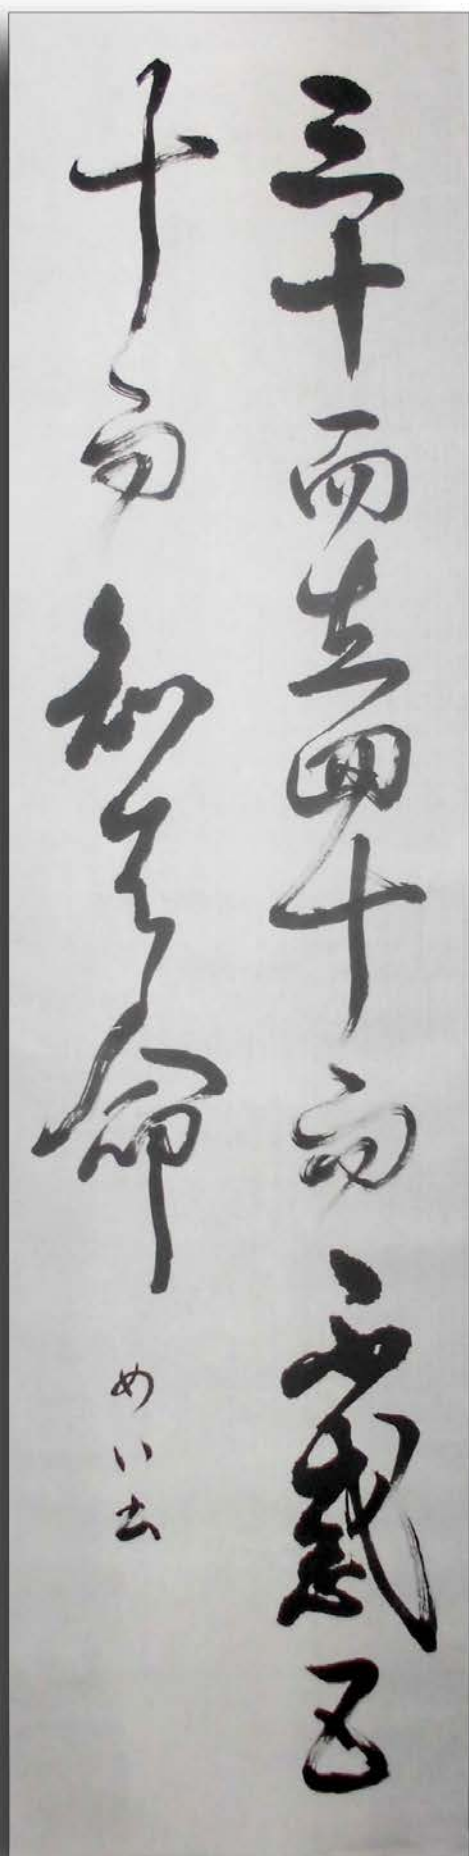 三十而立四十而不惑五
十而知天命
めい出